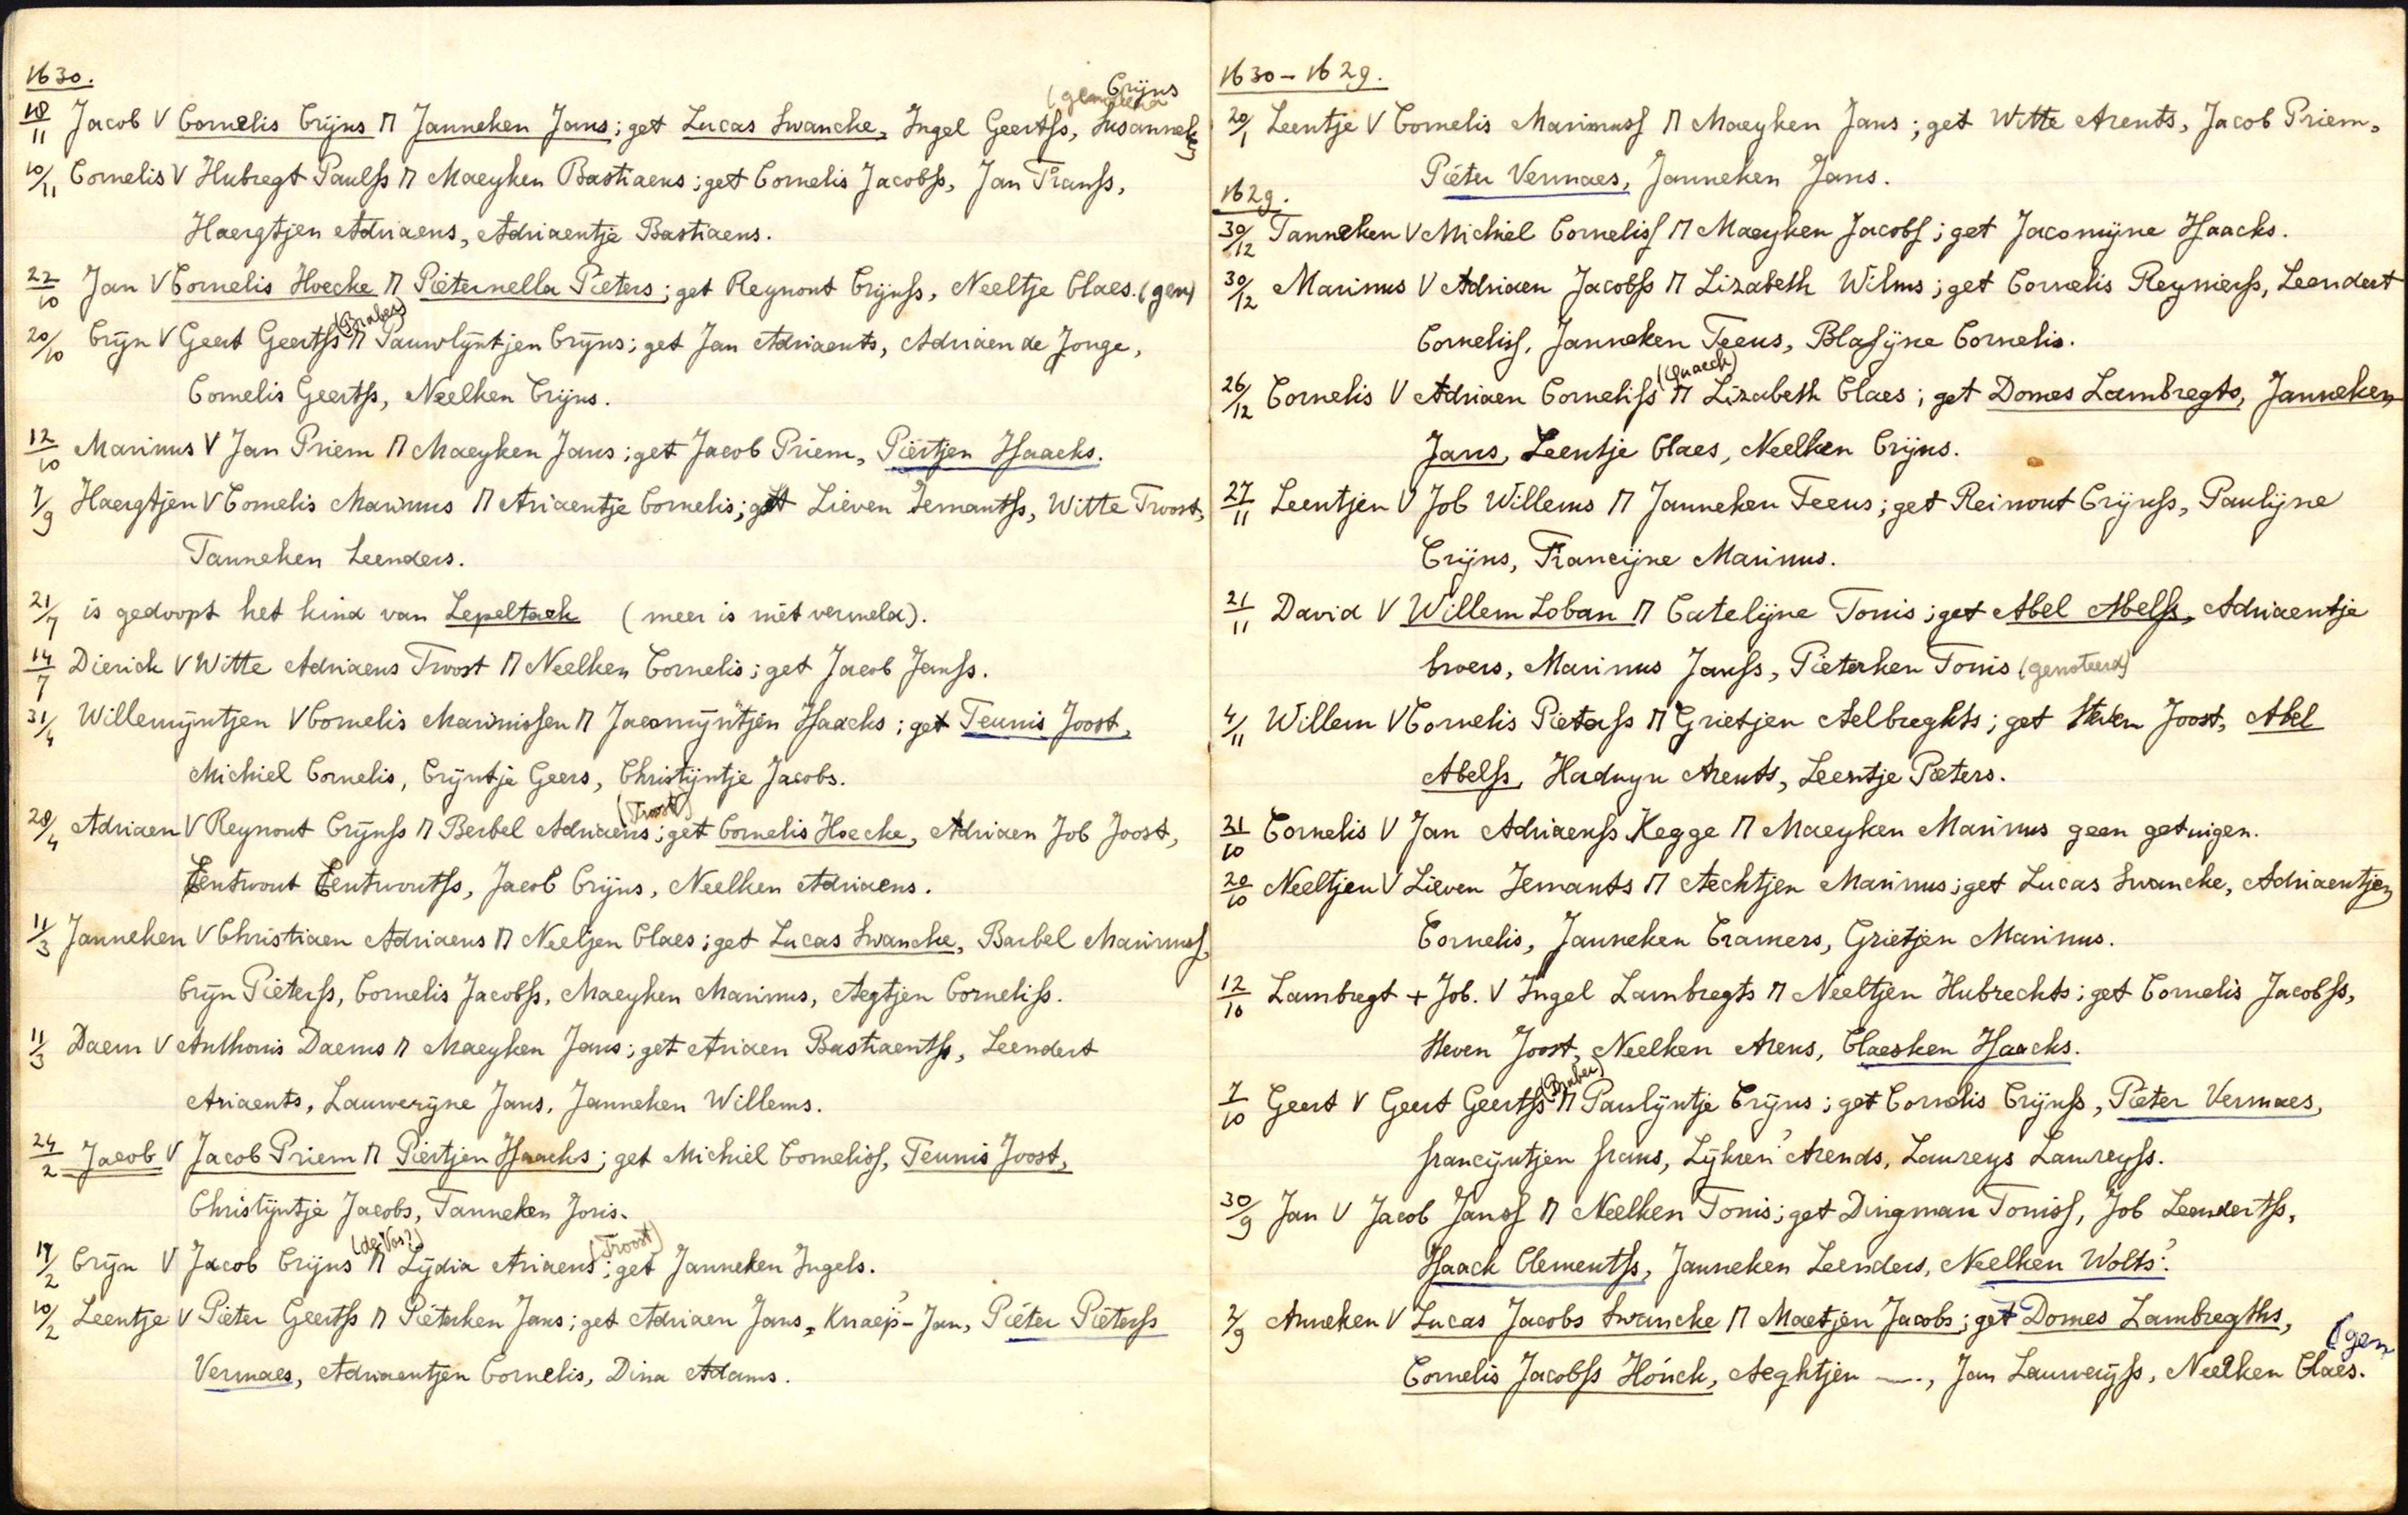 1630.
Crijns
18/11 Jacob V Cornelis Crijns M Janneken Jans; get Lucas Swancke, Ingel Geertss, Susanneken
10/11 Cornelis V Hubregt Paulss M Maeyken Bastiaens; get Cornelis Jacobss, Jan Franss,
Haegtjen Adriaens, Adriaentje Bastiaens.
22/10 Jan V Cornelis Hoecke M Pieternella Pieters; get Reynout Crijnss, Neeltje Claes. (gen)
(Braber)
20/10 Crijn V Geert Geertss M Pauwlijntjen Crijns; get Jan Adriaents, Adriaen de Jonge,
Cornelis Geertss, Neelken Crijns.
12/10 Marinus V Jan Priem M Maeyken Jans; get Jacob Priem, Piertjen Isaacks.
7/9 Haegtjen V Cornelis Marinus M Ariaentje Cornelis; get Lieven Iemantss, Witte Troost,
Tanneken Leenders.
21/7 is gedoopt het kind van Lepeltack (meer is niet vermeld).
14/7 Dierick V Witte Adriaens Troost M Neelken Cornelis; get Jacob Janss.
31/4 Willemijntjen V Cornelis Marinissen M Jacomijntjen Isaacks; get Teunis Joost,
Michiel Cornelis, Crijntje Geers, Christijntje Jacobs.
(Troost)
28/4 Adriaen V Reynout Crijnss M Berbel Adriaens; get Cornelis Hoecke, Adriaen Job Joost,
Eentwout Eentwoutss, Jacob Crijns, Neelken Adriaens.
11/3 Janneken V Christiaen Adriaens M Neeltjen Claes; get Lucas Swancke, Barbel Marinuss,
Crijn Pieterss, Cornelis Jacobss, Maeyken Marinus, Aegtjen Corneliss.
11/3 Daem V Anthonis Daems M Maeyken Jans; get Ariaen Bastiaentss, Leendert
Ariaents, Lauwerijne Jans, Janneken Willems.
24/2 Jacob V Jacob Priem M Piertjen Isaacks; get Michiel Corneliss, Teunis Joost,
Christijntje Jacobs, Tanneken Joris.
(de Vos?) (Troost)
19/2 Crijn V Jacob Crijns M Lijdia Ariaens; get Janneken Ingels.
10/2 Leentje V Pieter Geertss M Pieterken Jans; get Adriaen Jans, Knaep?-Jan, Pieter Pieterss
Vermaes, Adriaentjen Cornelis, Dina Adams.
1630-1629.
20/1 Leentje V Cornelis Marinuss M Maeyken Jans; get Witte Arents, Jacob Priem,
Pieter Vermaes, Janneken Jans.
1629.
30/12 Tanneken V Michiel Corneliss M Maeyken Jacobs; get Jacomijne Isaacks.
30/12 Marinus V Adriaen Jacobss M Lizabeth Wilms; get Cornelis Reynierss, Leendert
Corneliss, Janneken Teeus, Blasijne Cornelis.
(Quaeck)
26/12 Cornelis V Adriaen Corneliss M Lizabeth Claes; get Domes Lambregts, Janneken
Jans, Leentje Claes, Neelken Crijns.
27/11 Leentjen V Job Willems M Janneken Teeus; get Reinout Crijnss, Paulijne
Crijns, Francijne Marinus.
21/11 David V Willem Loban M Catelijne Tonis; get Abel Abelss, Adriaentje
broers, Marinus Janss, Pieterken Tonis (genoteerd)
4/11 Willem V Cornelis Pieterss M Grietjen Aelbreghts; get Steven Joost, Abel
Abelss, Hadwyn Arents, Leentje Pieters.
21/10 Cornelis V Jan Adriaenss Kegge M Maeyken Marinus geen getuigen.
20/10 Neeltjen V Lieven Iemants M Aechtjen Marinus; get Lucas Swancke, Adriaentjen
Cornelis, Janneken Cramers, Grietjen Marinus.
12/10 Lambregt + Job. V Ingel Lambregts M Neeltjen Hubrechts; get Cornelis Jacobss,
Steven Joost, Neelken Arens, Claesken Isaacks.
(Braber)
7/10 Geert V Geert Geertss M Paulijntje Crijns; get Cornelis Crijnss, Pieter Vermaes,
francijntjen frans, Lijken? Arends, Laureys Laureyss.
30/9 Jan V Jacob Janss M Neelken Tonis; get Dingman Toniss, Job Leendertss,
Isaack Clementss, Janneken Leenders, Neelken Wolts?.
2/9 Anneken V Lucas Jacobs Swancke M Maetjen Jacobs; get Domes Lambregths,
(gen
Cornelis Jacobss Hónck, Aeghtjen —., Jan Lauwerijss, Neelken Claes.